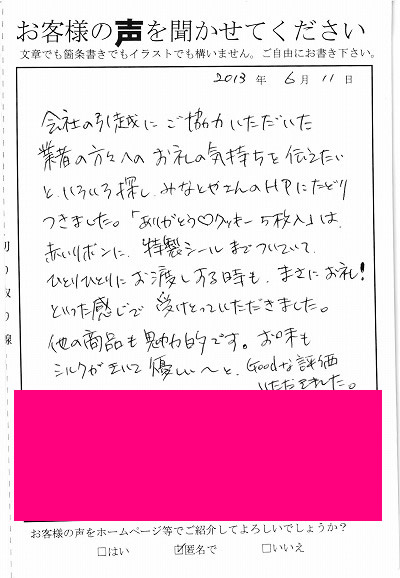 お客様の声を聞かせてください
文章でも箇条書きでもイラストでも構いません。ご自由にお書き下さい。
2013 年 6 月 11 日
会社の引越にご協力いただいた
業者の方々へのお礼の気持ちを伝えたい
と、いろいろ探し、みなとやさんのHPにたどり
つきました。「ありがとう♡クッキー5枚入」は、
赤いリボンに、特製シールまでついていて、
ひとりひとりにお渡しする時も、まさにお礼!
といった感じで受けとっていただきました。
他の商品も魅力的です。お味も
シルクがきいて優しい〜と、Goodな評価
いただきました。
切り取り線
お客様の声をホームページ等でご紹介してよろしいでしょうか?
□はい ☑匿名で □いいえ